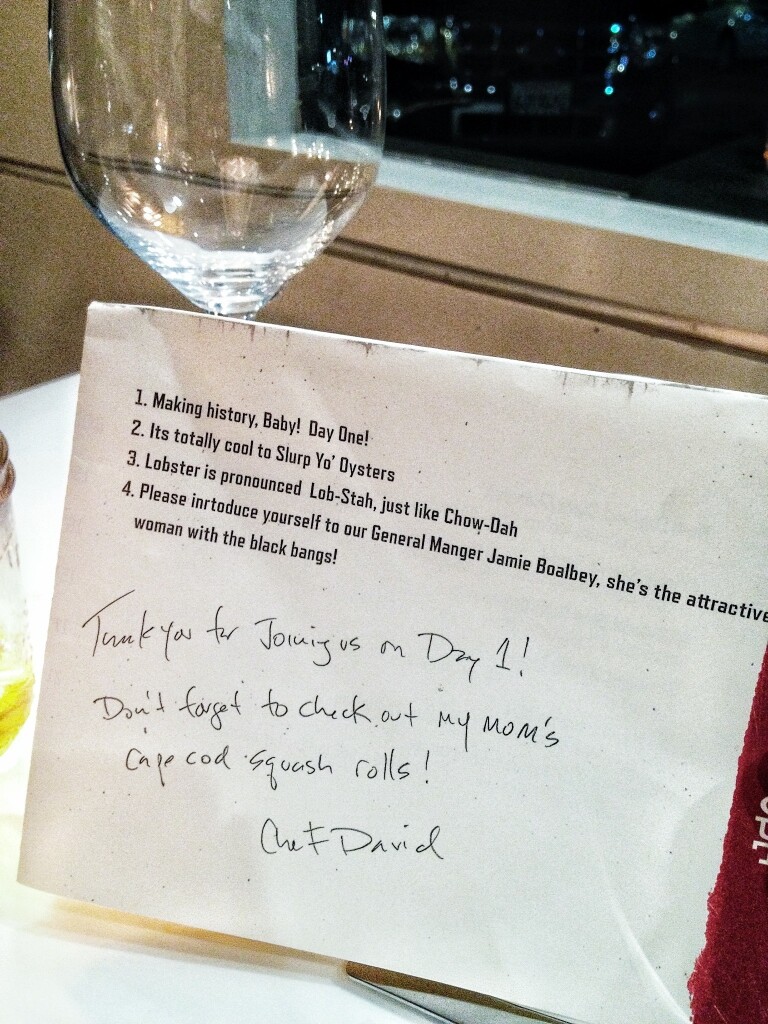 1. Making history, Baby! Day One!
2. Its totally cool to Slurp Yo' Oysters
3. Lobster is pronounced Lob-Stah, just like Chow-Dah
4. Please inrtoduce yourself to our General Manger Jamie Boalbey, she's the attractive
woman with the black bangs!
Thank you for Joining us on Day 1!
Don't forget to check out my mom's
Cape cod squash rolls!
Chef David